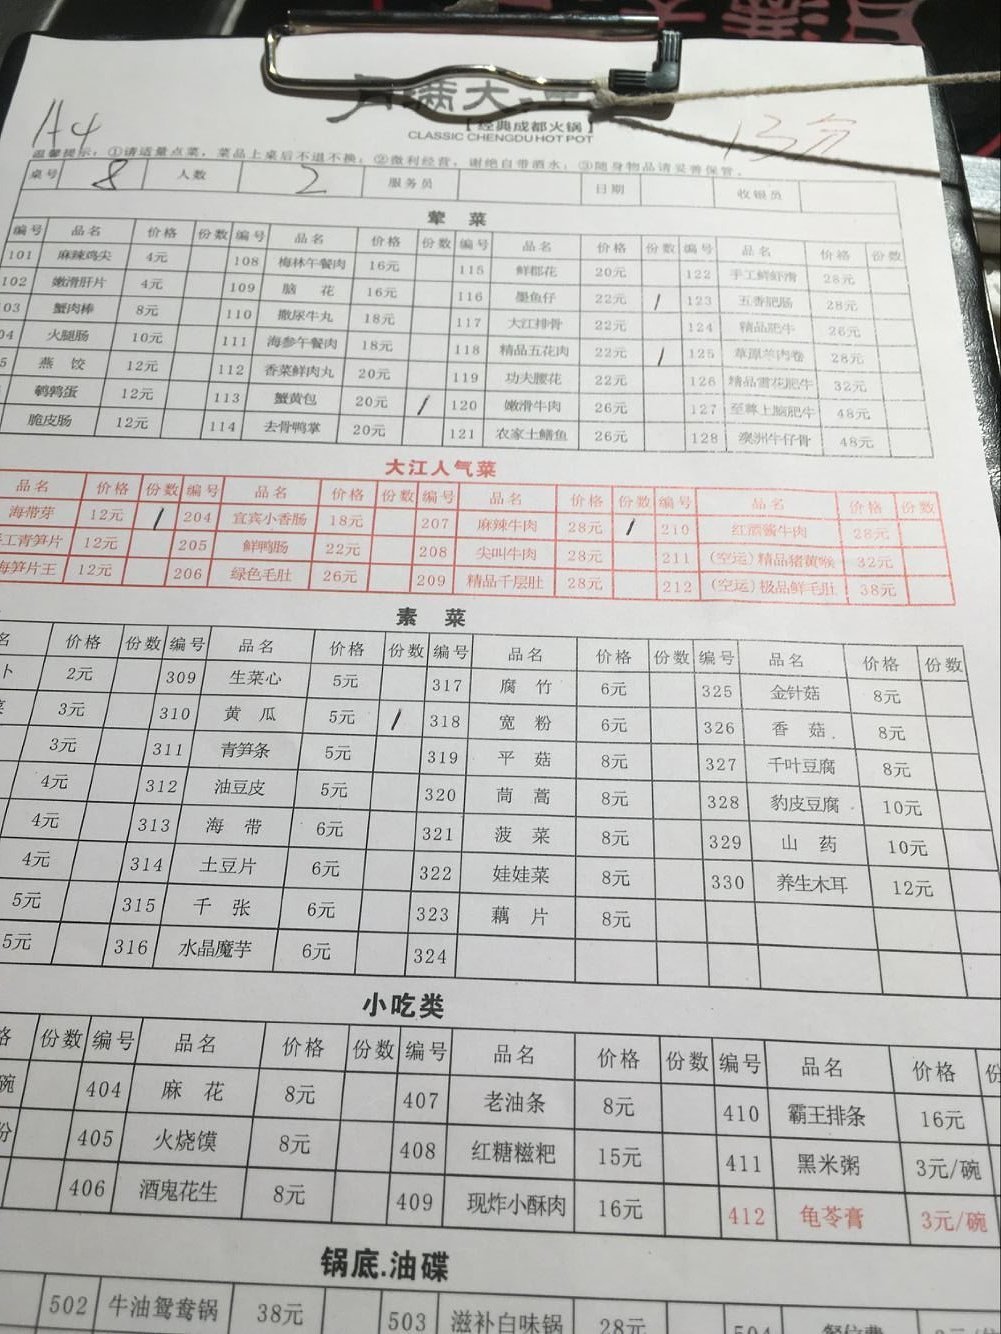 满大江
【经典成都火锅】
CLASSIC CHENGDU HOT POT
A4
13分
温馨提示：①请适量点菜，菜品上桌后不退不换；②微利经营，谢绝自带酒水；③随身物品请妥善保管。
桌号 8 人数 2 服务员 日期 收银员
荤 菜
编号 品名 价格 份数 编号 品名 价格 份数 编号 品名 价格 份数 编号 品名 价格 份数
101 麻辣鸡尖 4元 108 梅林午餐肉 16元 115 鲜郡花 20元 122 手工鲜虾滑 28元
102 嫩滑肝片 4元 109 脑 花 16元 116 墨鱼仔 22元 / 123 五香肥肠 28元
03 蟹肉棒 8元 110 撒尿牛丸 18元 117 大江排骨 22元 124 精品肥牛 26元
04 火腿肠 10元 111 海参午餐肉 18元 118 精品五花肉 22元 / 125 草原羊肉卷 28元
5 燕 饺 12元 112 香菜鲜肉丸 20元 119 功夫腰花 22元 126 精品雪花肥牛 32元
鹌鹑蛋 12元 113 蟹黄包 20元 / 120 嫩滑牛肉 26元 127 至尊上脑肥牛 48元
脆皮肠 12元 114 去骨鸭掌 20元 121 农家土鳝鱼 26元 128 澳洲牛仔骨 48元
大江人气菜
品名 价格 份数 编号 品名 价格 份数 编号 品名 价格 份数 编号 品名 价格 份数
海带芽 12元 / 204 宜宾小香肠 18元 207 麻辣牛肉 28元 / 210 红酒酱牛肉 28元
工青笋片 12元 205 鲜鸭肠 22元 208 尖叫牛肉 28元 211 (空运)精品猪黄喉 32元
海笋片王 12元 206 绿色毛肚 26元 209 精品千层肚 28元 212 (空运)极品鲜毛肚 38元
素 菜
名 价格 份数 编号 品名 价格 份数 编号 品名 价格 份数 编号 品名 价格 份数
卜 2元 309 生菜心 5元 317 腐 竹 6元 325 金针菇 8元
菜 3元 310 黄 瓜 5元 / 318 宽 粉 6元 326 香 菇 8元
3元 311 青笋条 5元 319 平 菇 8元 327 千叶豆腐 8元
4元 312 油豆皮 5元 320 茼 蒿 8元 328 豹皮豆腐 10元
4元 313 海 带 6元 321 菠 菜 8元 329 山 药 10元
4元 314 土豆片 6元 322 娃娃菜 8元 330 养生木耳 12元
5元 315 千 张 6元 323 藕 片 8元
5元 316 水晶魔芋 6元 324
小吃类
格 份数 编号 品名 价格 份数 编号 品名 价格 份数 编号 品名 价格 份
碗 404 麻 花 8元 407 老油条 8元 410 霸王排条 16元
份 405 火烧馍 8元 408 红糖糍粑 15元 411 黑米粥 3元/碗
406 酒鬼花生 8元 409 现炸小酥肉 16元 412 龟苓膏 3元/碗
锅底.油碟
502 牛油鸳鸯锅 38元 503 滋补白味锅 28元 504 餐位费